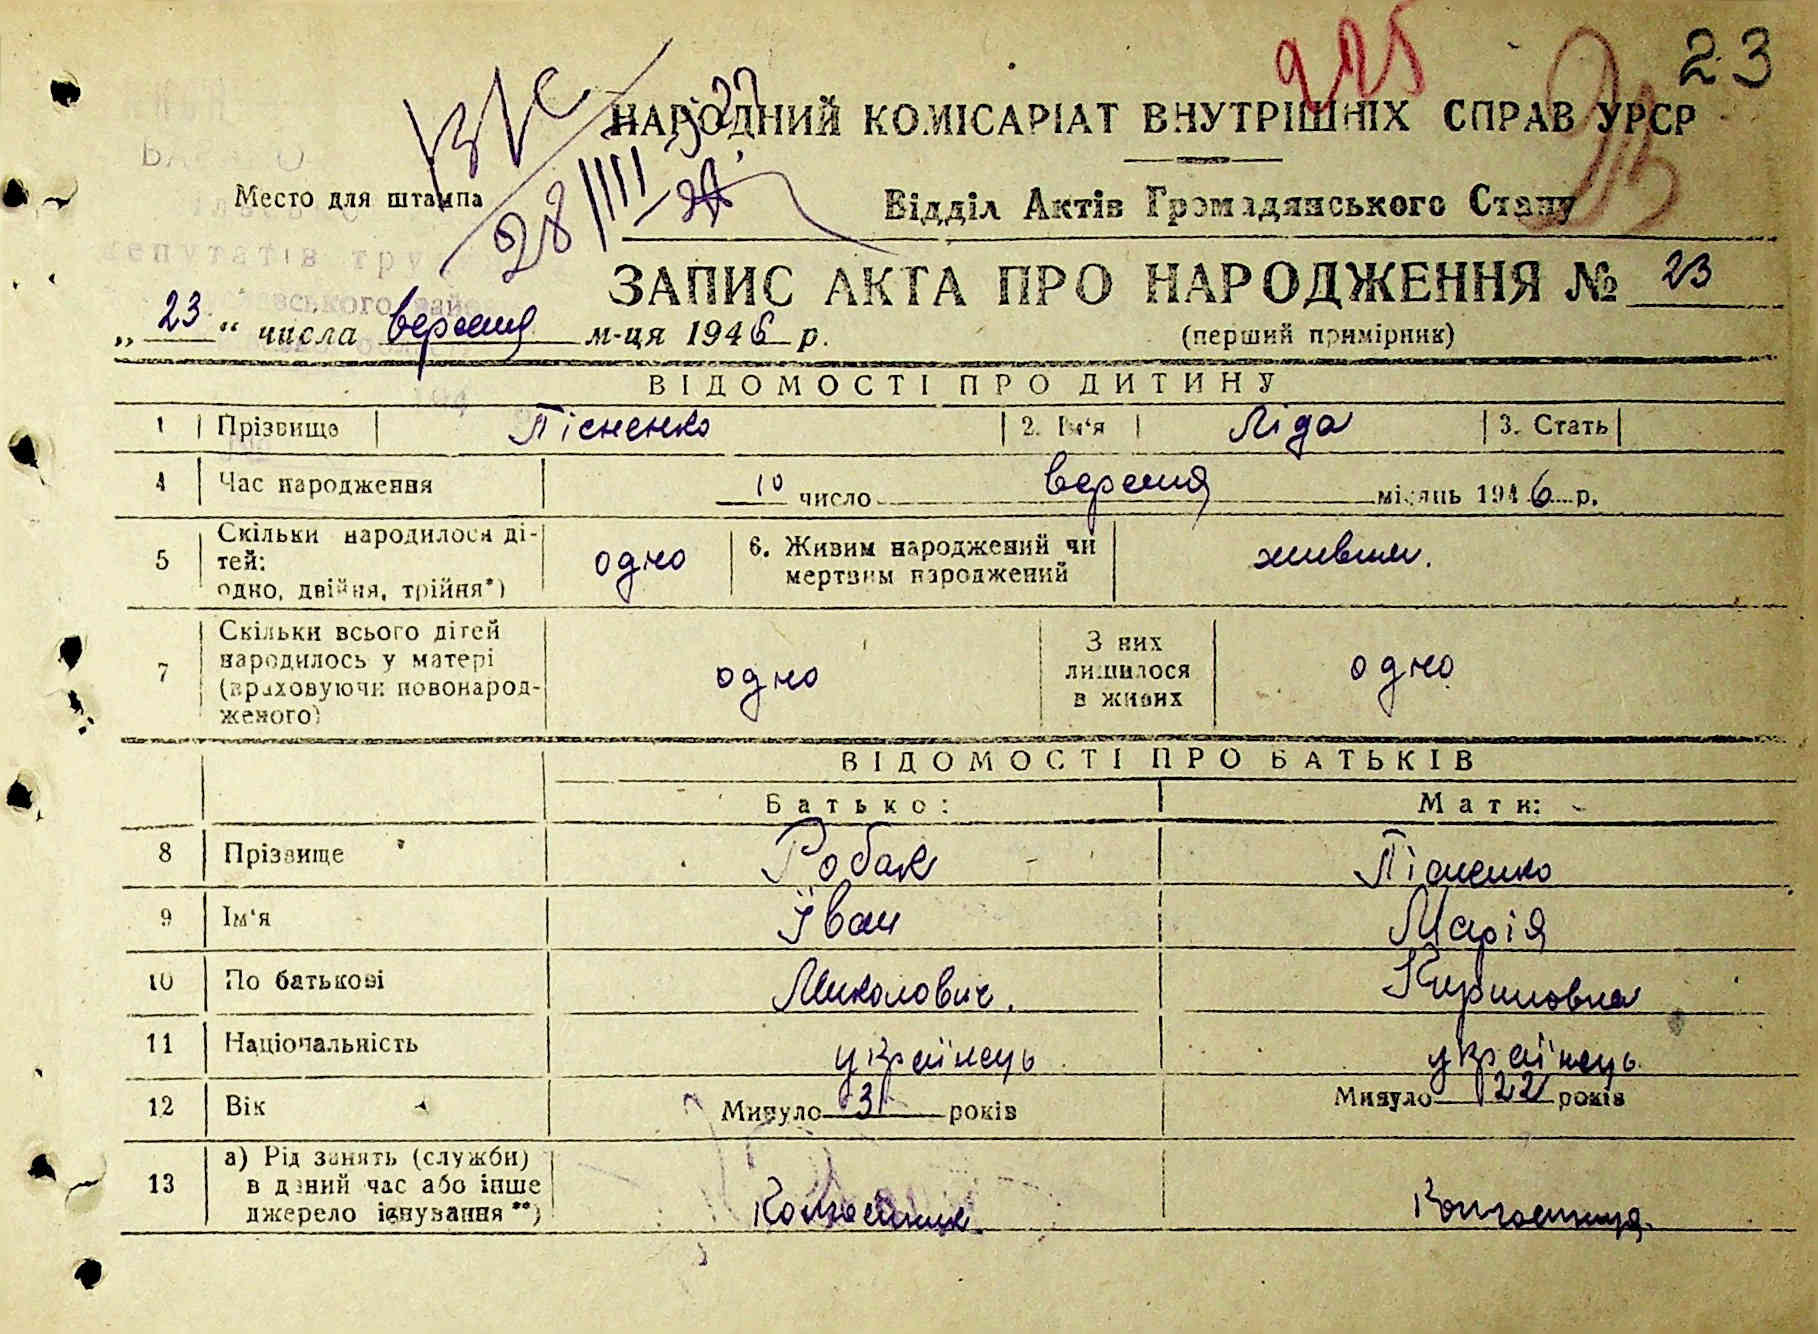 225
23
23
НАРОДНИЙ КОМІСАРІАТ ВНУТРІШНІХ СПРАВ УРСР
Место для штампа
28
Відділ Актів Громадянського Стану
ЗАПИС АКТА ПРО НАРОДЖЕННЯ № 23
„ 23 “ числа вересня м-ця 1946 р.
(перший примірник)
ВІДОМОСТІ ПРО ДИТИНУ
1 Прізвище Пісненко 2. Ім'я Ліда 3. Стать
4 Час народження 10 число вересня місяць 1946 р.
5 Скільки народилося ді-
тей:
одно, двійня, трійня*)
одно
6. Живим народжений чи
мертвим народжений
живим.
7 Скільки всього дітей
народилось у матері
(враховуючи новонарод-
женого)
одно
З них
лишилося
в живих
одно
ВІДОМОСТІ ПРО БАТЬКІВ
Батько: Мати:
8 Прізвище Робак Пісненко
9 Ім'я Іван Марія
10 По батькові Миколович. Кириловна
11 Національність українець українець
12 Вік Минуло 31 років Минуло 22 років
13 а) Рід занять (служби)
в даний час або інше
джерело існування**)
Колгоспник. Колгоспниця.